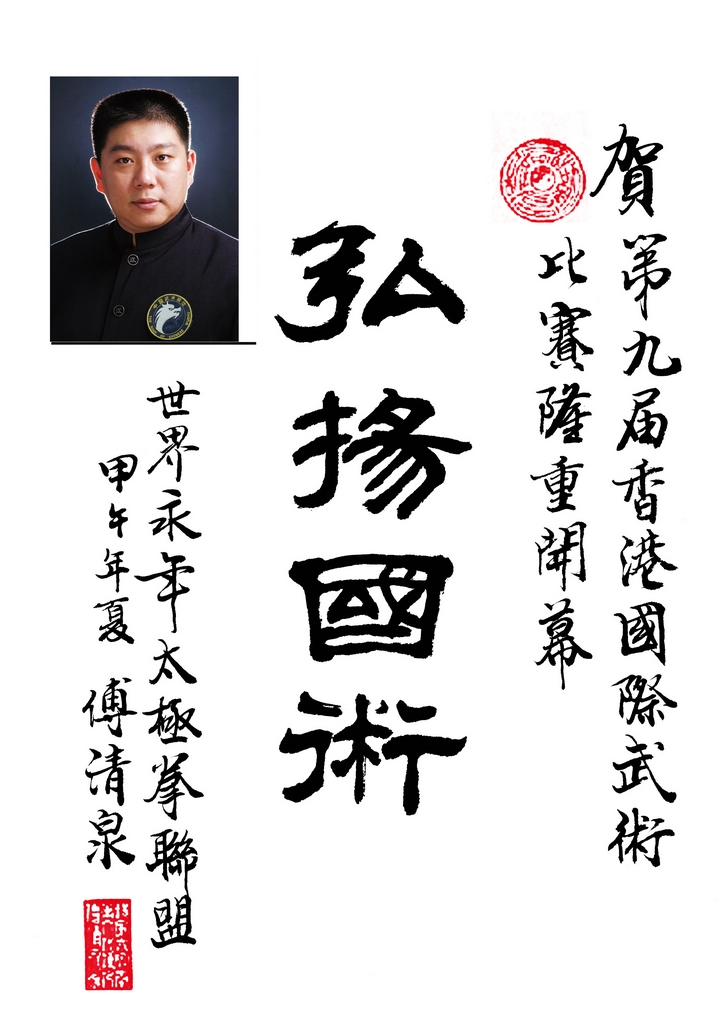 賀第九届香港國際武術
比賽隆重開幕
弘揚國術
世界永年太極拳聯盟
甲午年夏 傅清泉